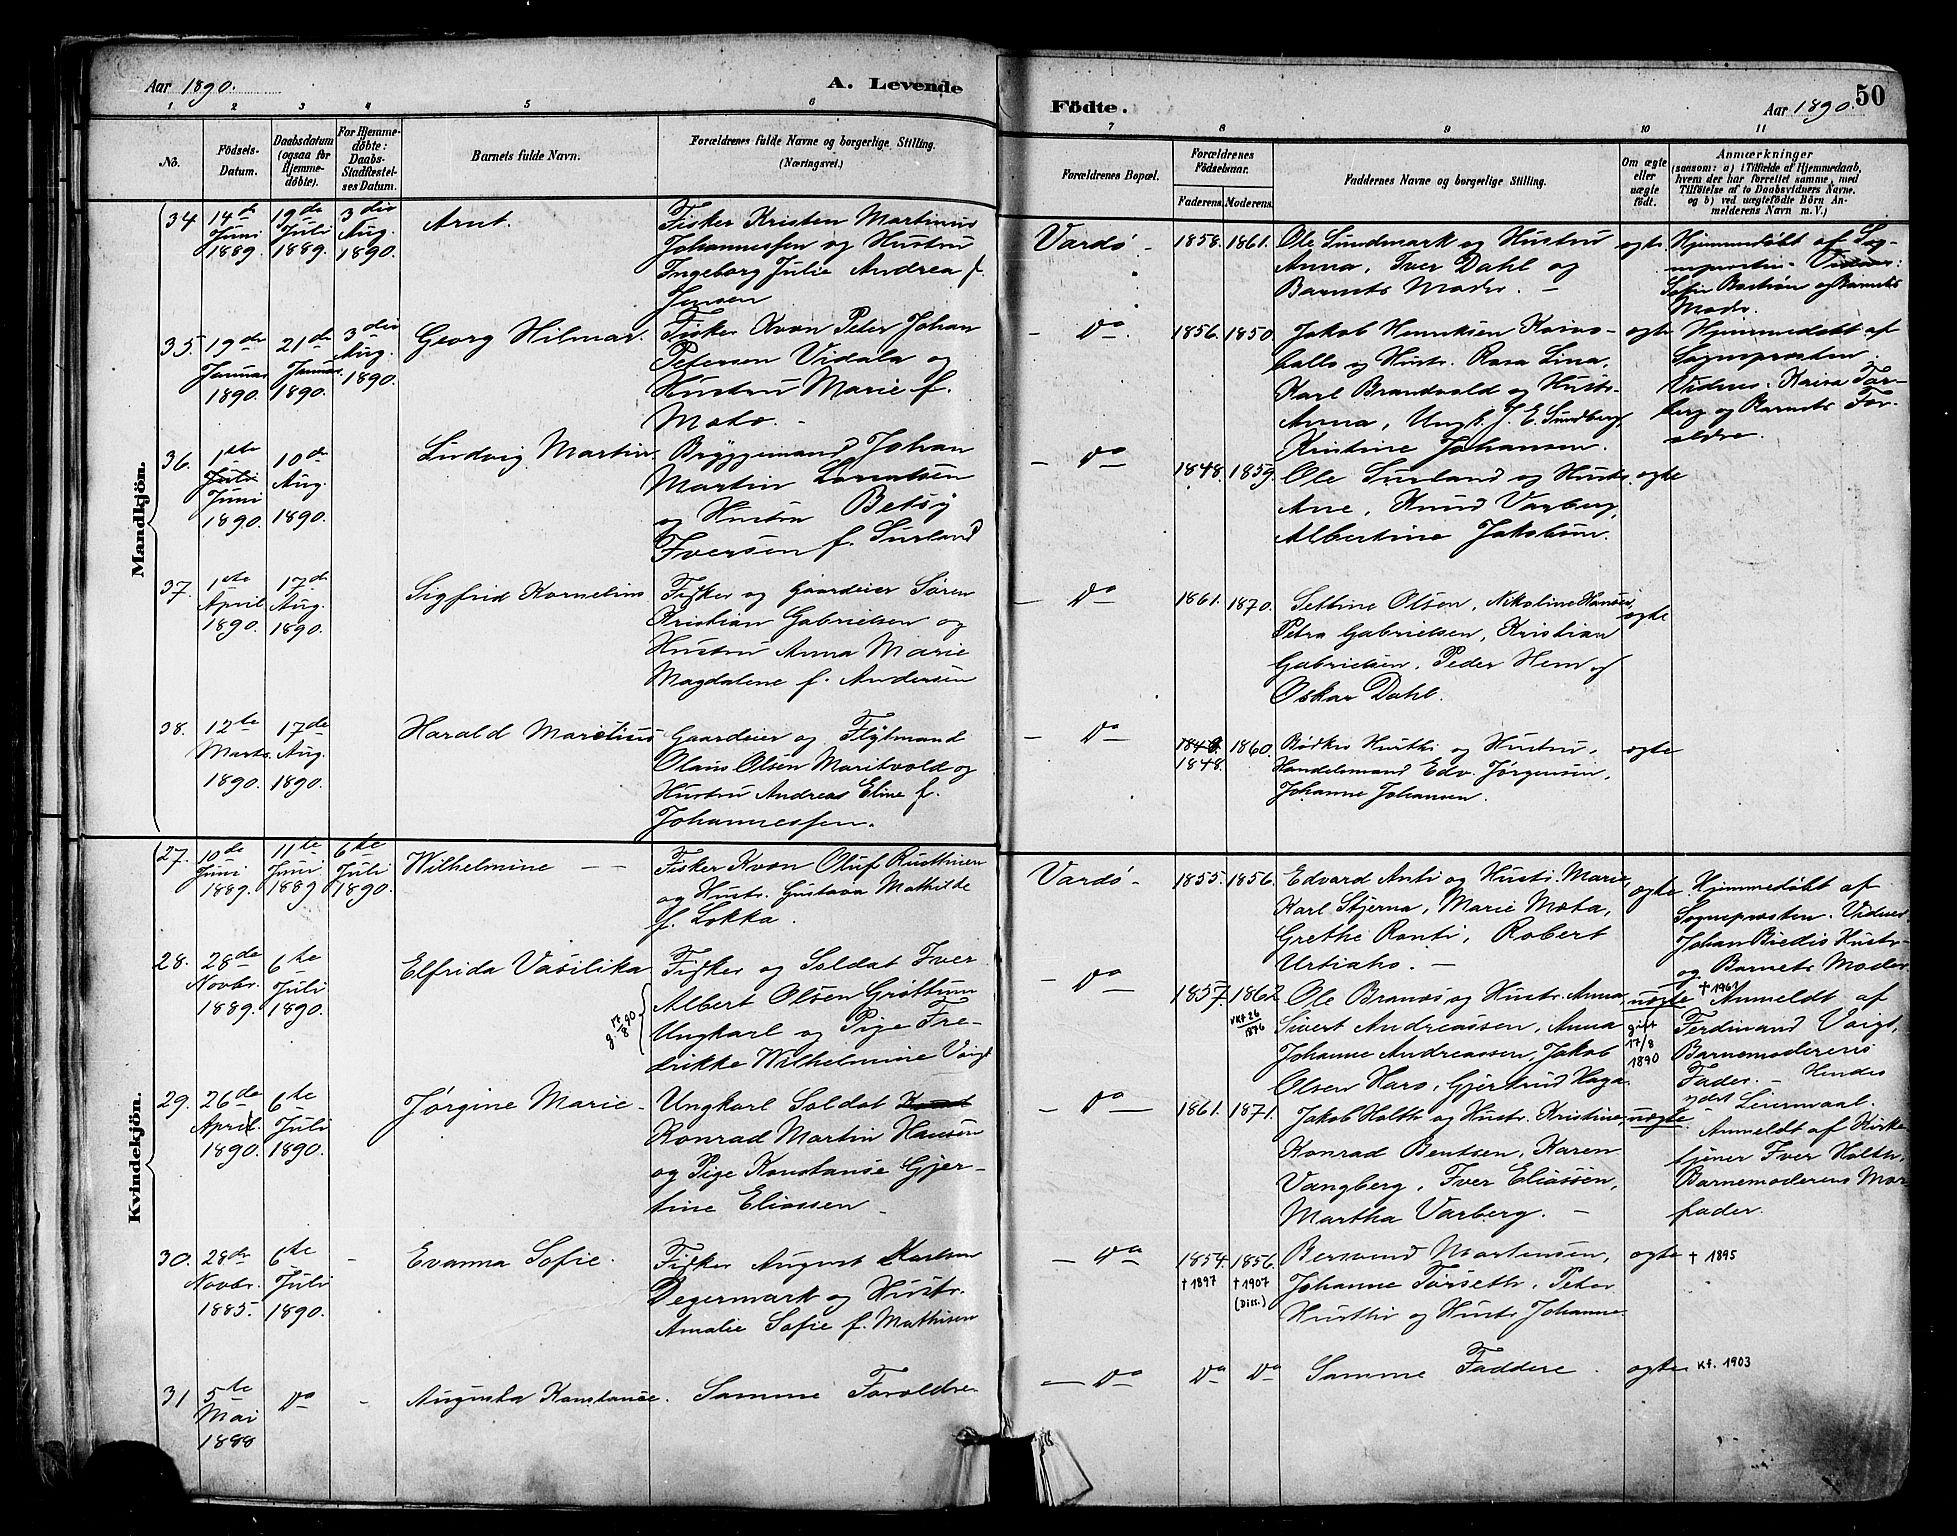 Aar 1890.
A. Levende
Födte.
Aar 1890.
50
1 2 3 4 5 6 7 8 9 10 11
No.
Födsels-
Datum.
Daabsdatum
(ogsaa for
Hjemme-
döbte).
For Hjemme-
döbte:
Daabs-
Stadfæstel-
ses Datum.
Barnets fulde Navn.
Forældrenes fulde Navne og borgerlige Stilling.
(Næringsvei.)
Forældrenes Bopæl.
Forældrenes
Födselsaar.
Faderens. Moderens.
Faddernes Navne og borgerlige Stilling.
Om ægte
eller
uægte
födt.
Anmærkninger
(saasom: a) i Tilfælde af Hjemmedaab,
hvem der har forrettet samme, med
Tilföielse af to Daabsvidners Navne.
og b) ved uægtefödte Börn An-
melderens Navn m. V.)
Mandkjön.
34
14de
Juni
1889.
19de
Juli
1889.
3die
Aug.
1890.
Arnt.
Fisker Kristen Martinus
Johannessen og Hustru
Ingeborg Julie Andrea f.
Jensen
Vardø
1858. 1861.
Ole Sundmark og Hustru
Anna, Iver Dahl og
Barnets Moder. –
ægte
Hjemmedøbt af Sog-
nepræsten
og Barnets
Moder.
35.
19de
Januar
1890.
21de
Januar
1890.
3die
Aug.
1890.
Georg Hilmar.
Fisker Kvæn Peter Johan
Petersen Vidala og
Hustru Marie f.
Moto.
– Do
1856. 1850.
Jakob Henriksen Koivo-
og Hustr. Rosa Lina,
Karl Brandvold og Hustr.
Anna, Ungk. J. E. Sundberg,
Kristine Johansen.
ægte
Hjemmedøbt af
Sognepræsten.
Vidner: Kaisa For-
berg og Barnets For-
ældre.
36.
1ste
Juli
Juni
1890.
10de
Aug.
1890.
Ludvig Martin
Bryggemand Johan
Martin Lorentsen
og Hustru Betsy
Iversen f. Surland
– Do
1848. 1859.
Ole Surland og Hustr.
Ane, Knud Varberg,
Albertine Jakobsen.
ægte
37.
1ste
April
1890.
17de
Aug.
1890.
Sigfrid Kornelius
Fisker og Gaardeier Søren
Kristian Gabrielsen og
Hustru Anna Marie
Magdalene f. Andersen
– Do
1861. 1870.
Settine Olsen, Nikoline Hansen,
Petra Gabrielsen, Kristian
Gabrielsen, Peder Hem og
Oskar Dahl.
ægte
38.
12te
Marts
1890.
17de
Aug.
1890.
Harald Marelius
Gaardeier og Flytmand
Olaus Olsen Maritvold og
Hustru Andrea Eline f.
Johannessen.
– Do
1848. 1860.
Bødker Husthi og Hustru,
Handelsmand Edv. Jørgensen,
Johanne Johansen.
ægte
Kvindekjön.
27.
10de
Juni
1889.
11te
Juni
1889
6te
Juli
1890.
Wilhelmine – –
Fisker Kvæn Oluf
og Hustr. Gustava Mathilde
f. Lokka.
Vardø
1855. 1856.
Edvard Anti og Hustr. Marie,
Karl Stjerna, Marie Mæta,
Grethe Ronti, Robert
Urtiaho. –
ægte.
Hjemmedøbt af
Sognepræsten. Vidner
Johan Hustr.
og Barnets Moder.
28.
28de
Novbr.
1889.
6te
Juli
1890.
Elfrida Vasilika
Fisker og Soldat Iver
Albert Olsen Grøttum
Ungkarl og Pige Fre-
drikke Wilhelmine Voigt
g. 17/8 90
– Do
1857. 1862
VKf 26/1876
Ole Brandes og Hustr. Anna,
Sivert Andreassen, Anna
Johanne Andreassen, Jakob
Olsen Haro, Gjertrud Haga.
uægte
gift
17/8
1890
† 1961
Anmeldt af
Ferdinand Voigt,
Barnemoderens
Fader. – Hendes
2det Leiermaal.
29.
26de
April.
1890.
6te
Juli
1890.
Jørgine Marie.
Ungkarl Soldat
Konrad Martin Hansen
og Pige Konstanse Gjer-
tine Eliassen
– Do –
1861. 1871.
Jakob Holth og Hustr. Kristine,
Konrad Bentsen, Karen
Vangberg, Iver Eliassen,
Martha Varberg. –
uægte.
Anmeldt af Kirke-
tjener Iver Holth,
Barnemoderens Mor-
fader.
30.
28de
Novbr.
1885.
6te
Juli
1890.
–
Evanna Sofie.
Fisker August Karlsen
Degermark og Hustr.
Amalie Sofie f. Mathisen
– Do
1854.
† 1897
1856.
† 1907
(Diss.)
Bersvend Mortensen,
Johanne Forseth, Peter
Husthi og Hustr. Johanne
ægte
† 1895
31
5te
Mai
1888
Do
–
Augusta Konstanse.
Samme Forældre
– Do
Do Do
Samme Faddere.
ægte
Kf. 1903